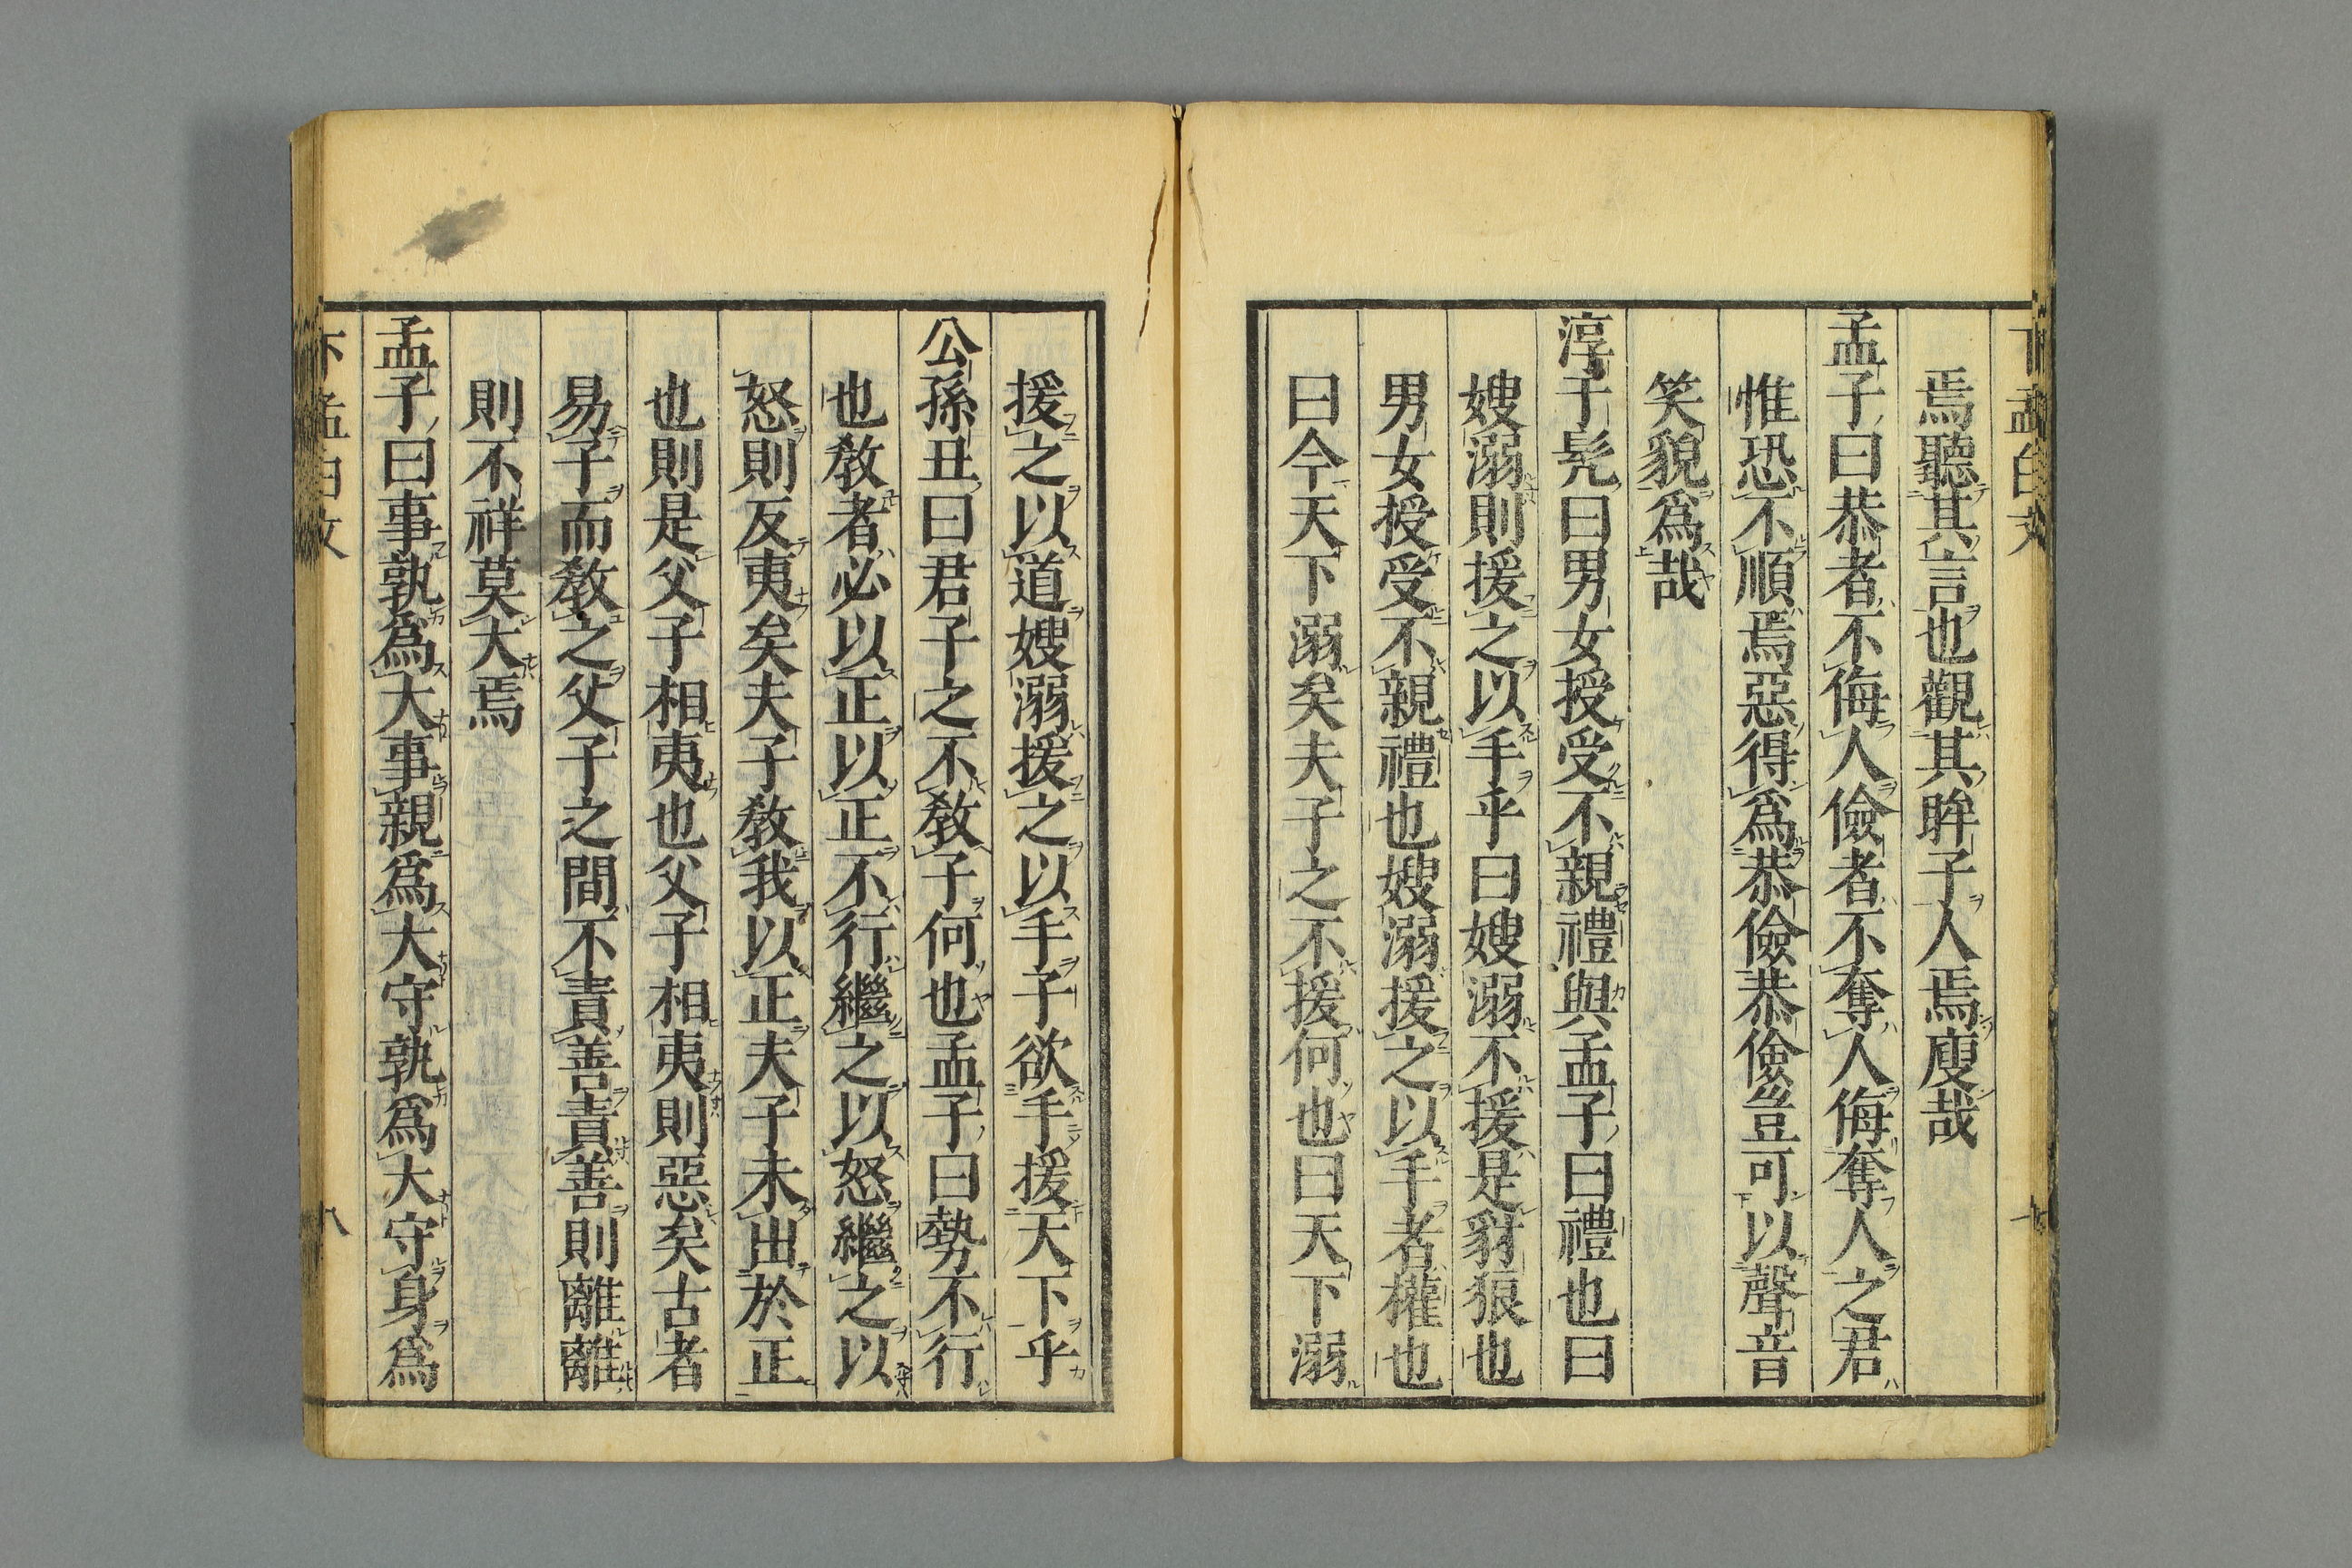 焉聽其言也觀其眸子人焉廋哉
孟子曰恭者不侮人儉者不奪人侮奪人之君
惟恐不順焉惡得爲恭儉恭儉豈可以聲音
笑貌爲哉
淳于髡曰男女授受不親禮與孟子曰禮也曰
嫂溺則援之以手乎曰嫂溺不援是豺狼也
男女授受不親禮也嫂溺援之以手者權也
曰今天下溺矣夫子之不援何也曰天下溺
援之以道嫂溺援之以手子欲手援天下乎
公孫丑曰君子之不敎子何也孟子曰勢不行
也敎者必以正以正不行繼之以怒繼之以
怒則反夷矣夫子敎我以正夫子未出於正
也則是父子相夷也父子相夷則惡矣古者
易子而敎之父子之間不責善責善則離離
則不祥莫大焉
孟子曰事孰爲大事親爲大守孰爲大守身爲
八